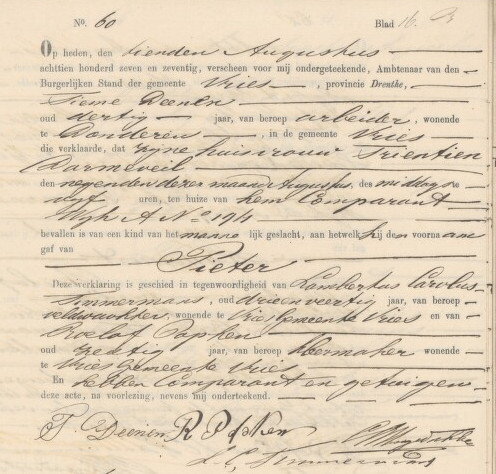 No. 60 Blad 16.
Op heden, den tienden Augustus
achttien honderd zeven en zeventig, verscheen voor mij ondergeteekende, Ambtenaar van den
Burgerlijken Stand der gemeente Vries, provincie Drenthe,
Sieme Deenen
oud dertig jaar, van beroep arbeider, wonende
te Donderen, in de gemeente Vries
die verklaarde, dat zijne huisvrouw Trientien
Darmeveil
den negenden dezer maand Augustus, des middags te
vijf uren, ten huize van hem Comparant
Wijk A No 194
bevallen is van een kind van het mannelijk geslacht, aan hetwelk hij den voornaam
gaf van
Pieter
Deze verklaring is geschied in tegenwoordigheid van Lambertus Carolus
Timmermans, oud drieenveertig jaar, van beroep
veldwachter, wonende te Vries Gemeente Vries en van
Roelof Papken
oud zestig jaar, van beroep kleermaker wonende
te Vries Gemeente Vries
En hebben Comparant en getuigen
deze acte, na voorlezing, nevens mij onderteekend.
S. Deenen R Papken
L. C. Timmermans